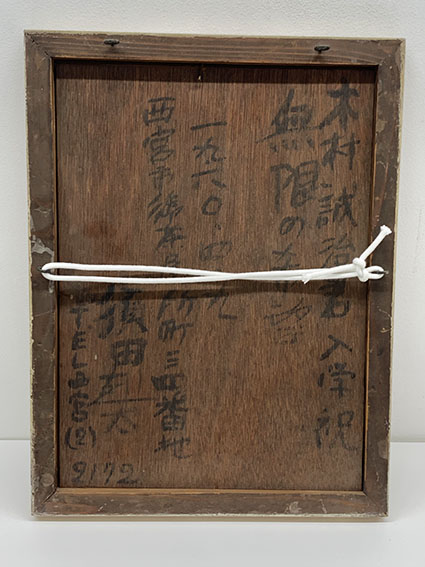 木村誠治君入学祝
無限の
一九六〇・四・九
西宮市 町三四番地
須田剋太
TEL西宮(2)9172